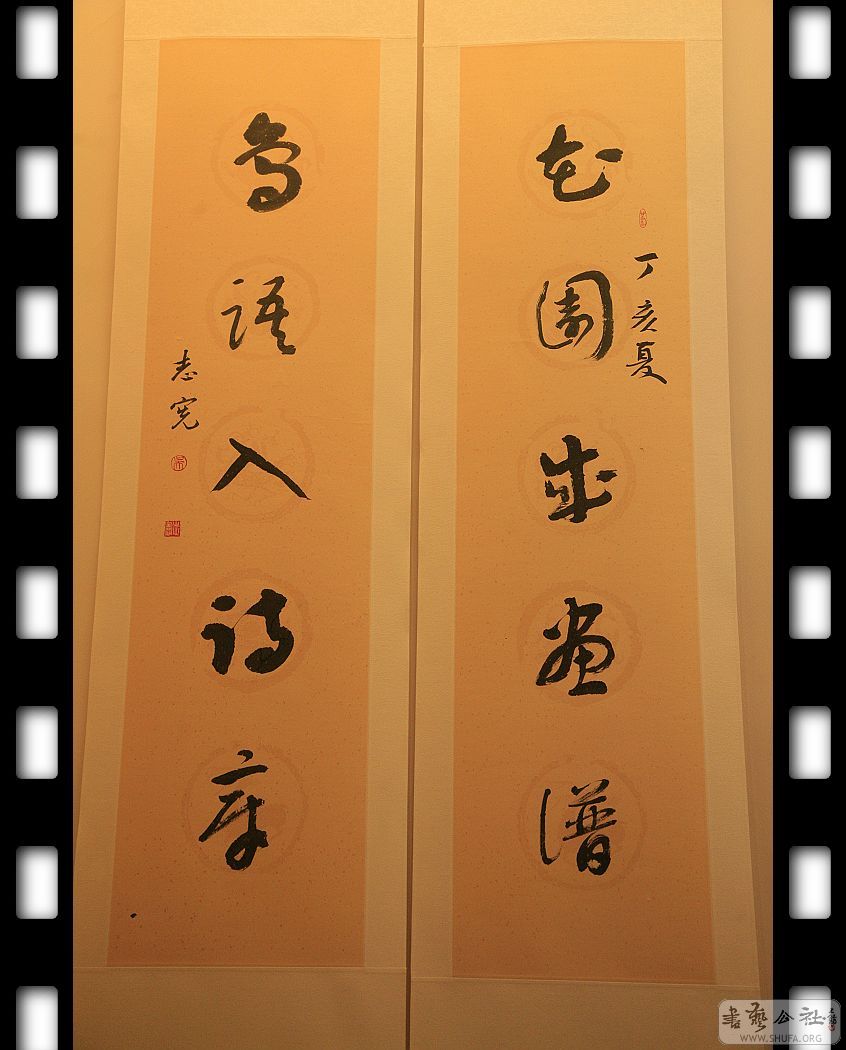 花園成畫譜
丁亥夏
鳥語入詩章
志宪
書藝公社
WWW.SHUFA.ORG